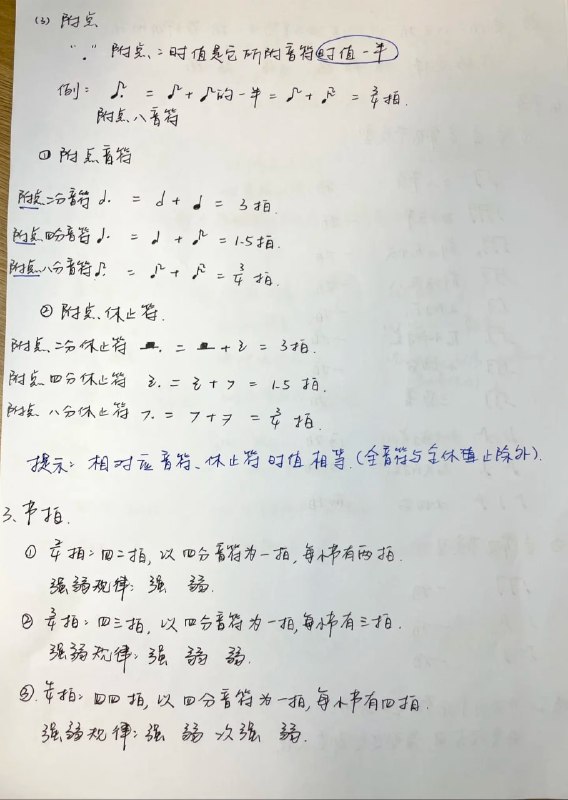 (3) 附点
"." 附点：时值是它所附音符时值一半
例：♪. = ♪ + ♪的一半 = ♪ + 𝅘𝅥𝅯 = 3/4拍.
附点八音符
① 附点音符
附点二分音符 𝅗𝅥. = 𝅗𝅥 + ♩ = 3拍.
附点四分音符 ♩. = ♩ + ♪ = 1.5拍.
附点八分音符 ♪. = ♪ + 𝅘𝅥𝅯 = 3/4拍.
② 附点休止符.
附点二分休止符 𝄼. = 𝄼 + 𝄽 = 3拍.
附点四分休止符 𝄽. = 𝄽 + 𝄾 = 1.5拍.
附点八分休止符 𝄾. = 𝄾 + 𝄿 = 3/4拍.
提示：相对应音符、休止符时值相等.(全音符与全休止除外).
3、节拍.
① 2/4拍：四二拍, 以四分音符为一拍, 每小节有两拍.
强弱规律：强 弱.
② 3/4拍：四三拍, 以四分音符为一拍, 每小节有三拍.
强弱规律：强 弱 弱.
③. 4/4拍：四四拍, 以四分音符为一拍, 每小节有四拍.
强弱规律：强 弱 次强 弱.